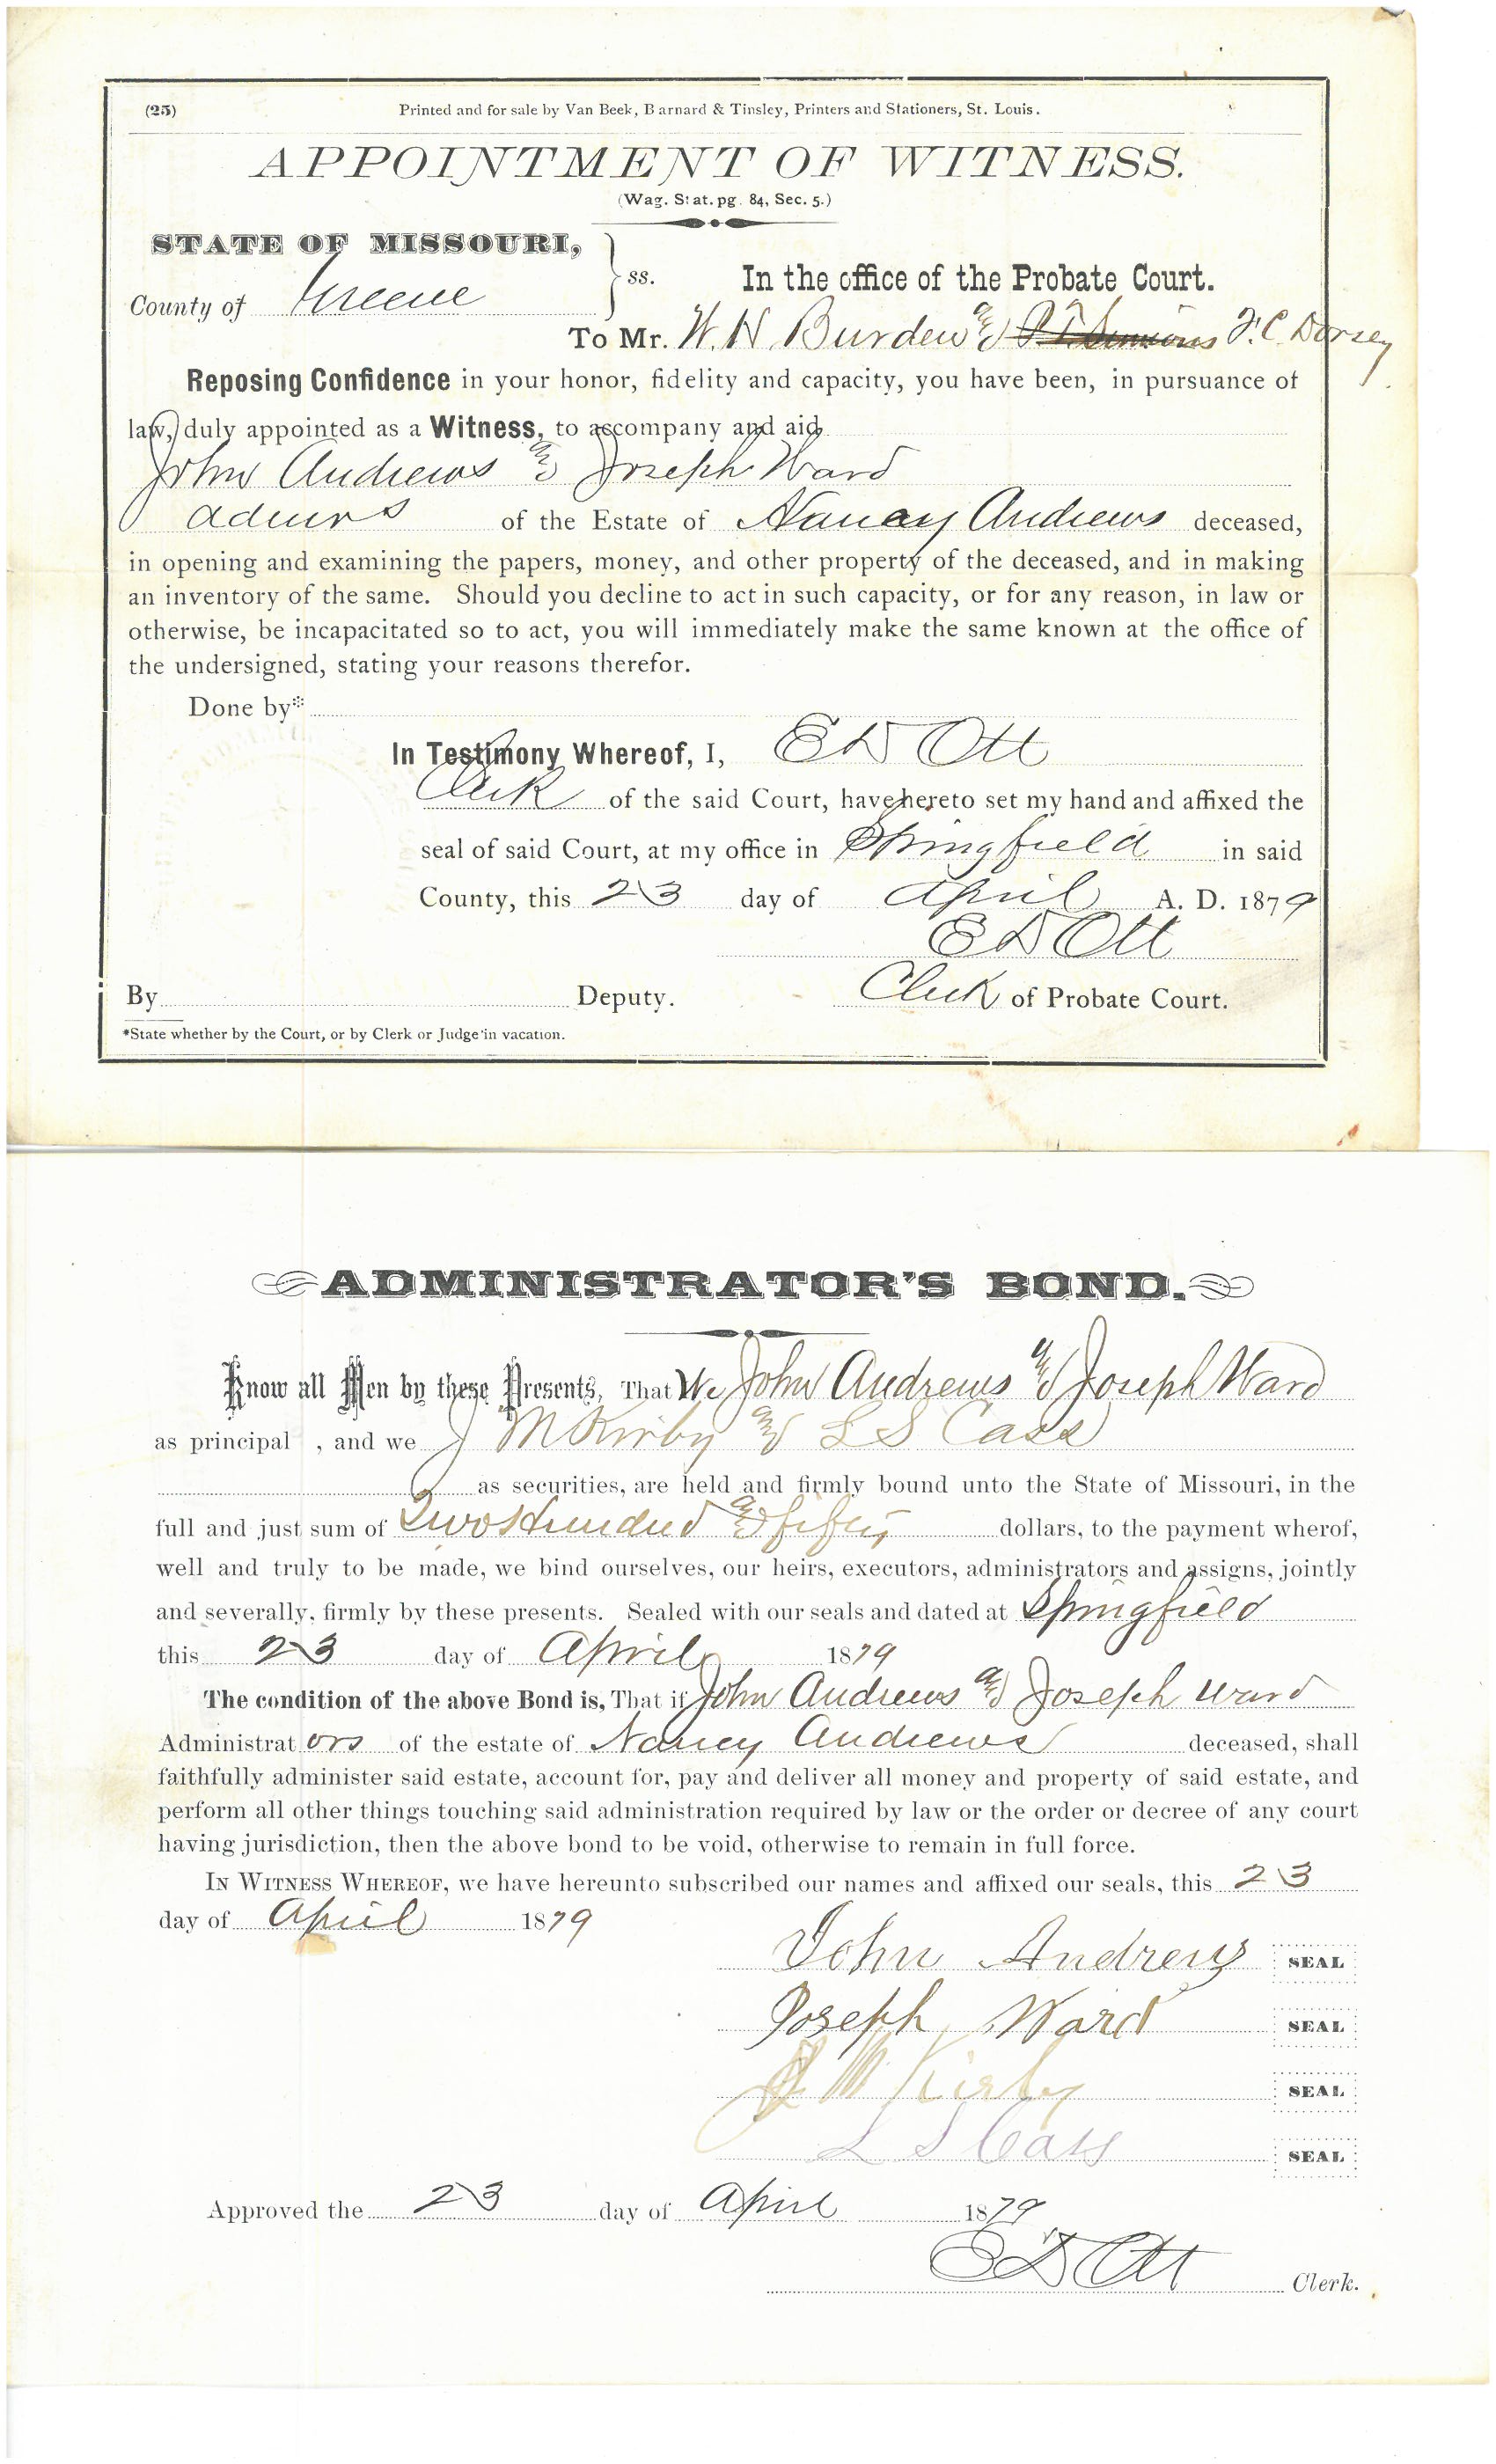 (25)
Printed and for sale by Van Beek, Barnard & Tinsley, Printers and Stationers, St. Louis.
APPOINTMENT OF WITNESS.
(Wag. Stat. pg. 84, Sec. 5.)
STATE OF MISSOURI,
County of Greene
ss.
In the office of the Probate Court.
To Mr. W. H. Burden & F. C. Dorsey
Reposing Confidence in your honor, fidelity and capacity, you have been, in pursuance of
law, duly appointed as a Witness, to accompany and aid
John Andrews & Joseph Ward
admrs of the Estate of Nancy Andrews deceased,
in opening and examining the papers, money, and other property of the deceased, and in making
an inventory of the same. Should you decline to act in such capacity, or for any reason, in law or
otherwise, be incapacitated so to act, you will immediately make the same known at the office of
the undersigned, stating your reasons therefor.
Done by*
In Testimony Whereof, I, E D Ott
Clerk of the said Court, have hereto set my hand and affixed the
seal of said Court, at my office in Springfield in said
County, this 23 day of April A. D. 1879
E D Ott
By Deputy. Clerk of Probate Court.
*State whether by the Court, or by Clerk or Judge in vacation.
ADMINISTRATOR'S BOND.
Know all Men by these Presents, That We John Andrews & Joseph Ward
as principal , and we J M Kirby & L S Cass
as securities, are held and firmly bound unto the State of Missouri, in the
full and just sum of Two Hundred & fifty dollars, to the payment wherof,
well and truly to be made, we bind ourselves, our heirs, executors, administrators and assigns, jointly
and severally, firmly by these presents. Sealed with our seals and dated at Springfield
this 23 day of April 1879
The condition of the above Bond is, That if John Andrews & Joseph Ward
Administrators of the estate of Nancy Andrews deceased, shall
faithfully administer said estate, account for, pay and deliver all money and property of said estate, and
perform all other things touching said administration required by law or the order or decree of any court
having jurisdiction, then the above bond to be void, otherwise to remain in full force.
IN WITNESS WHEREOF, we have hereunto subscribed our names and affixed our seals, this 23
day of April 1879
John Andrews SEAL
Joseph Ward SEAL
J M Kirby SEAL
L S Cass SEAL
Approved the 23 day of April 1879
E D Ott Clerk.